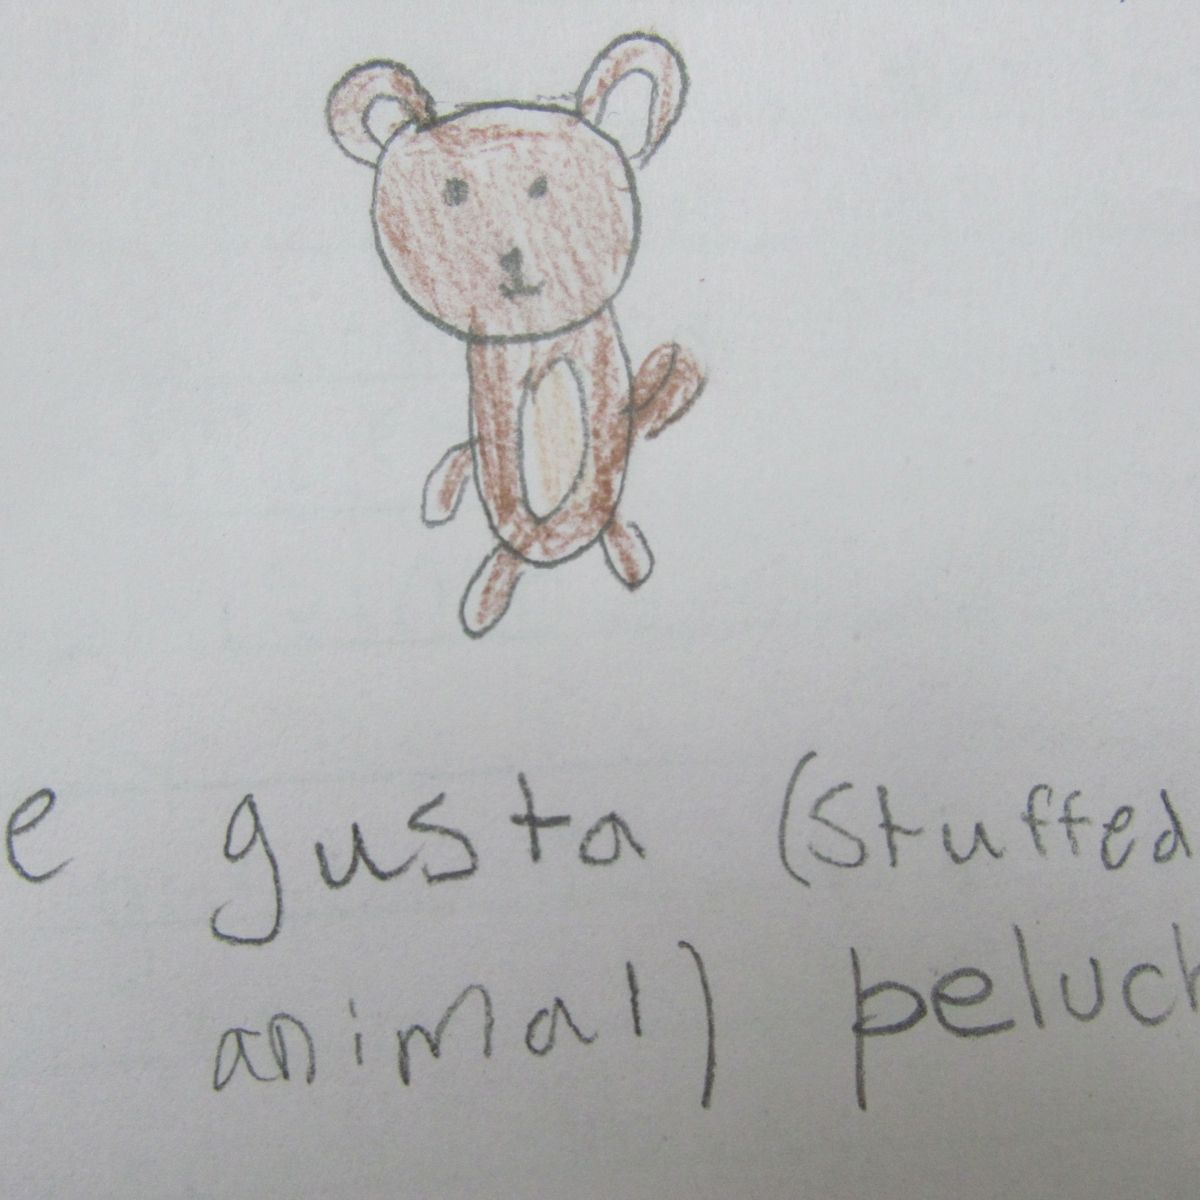 e gusta (stuffed
animal) peluch